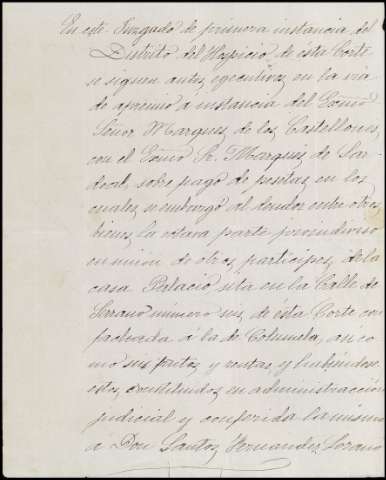 En este Juzgado de primera instancia del
Distrito del Hospicio de esta Corte
se siguen autos ejecutivos en la via
de apremio á instancia del Excmo
Señor Marques de los Castellones
con el Excmo Sr. Marques de Sar-
doal, sobre pago de pesetas en los
cuales se embargó al deudor entre otros
bienes la octava parte proindiviso
en union de otros participes de la
casa Palacio sita en la Calle de
Serrano número seis de ésta Corte con
fachada á la de Columela, asi co
mo sus frutos y rentas, y habiéndose
estos constituidos en administracion
judicial y conferida la misma
á Don Santos Hernandez Lozano